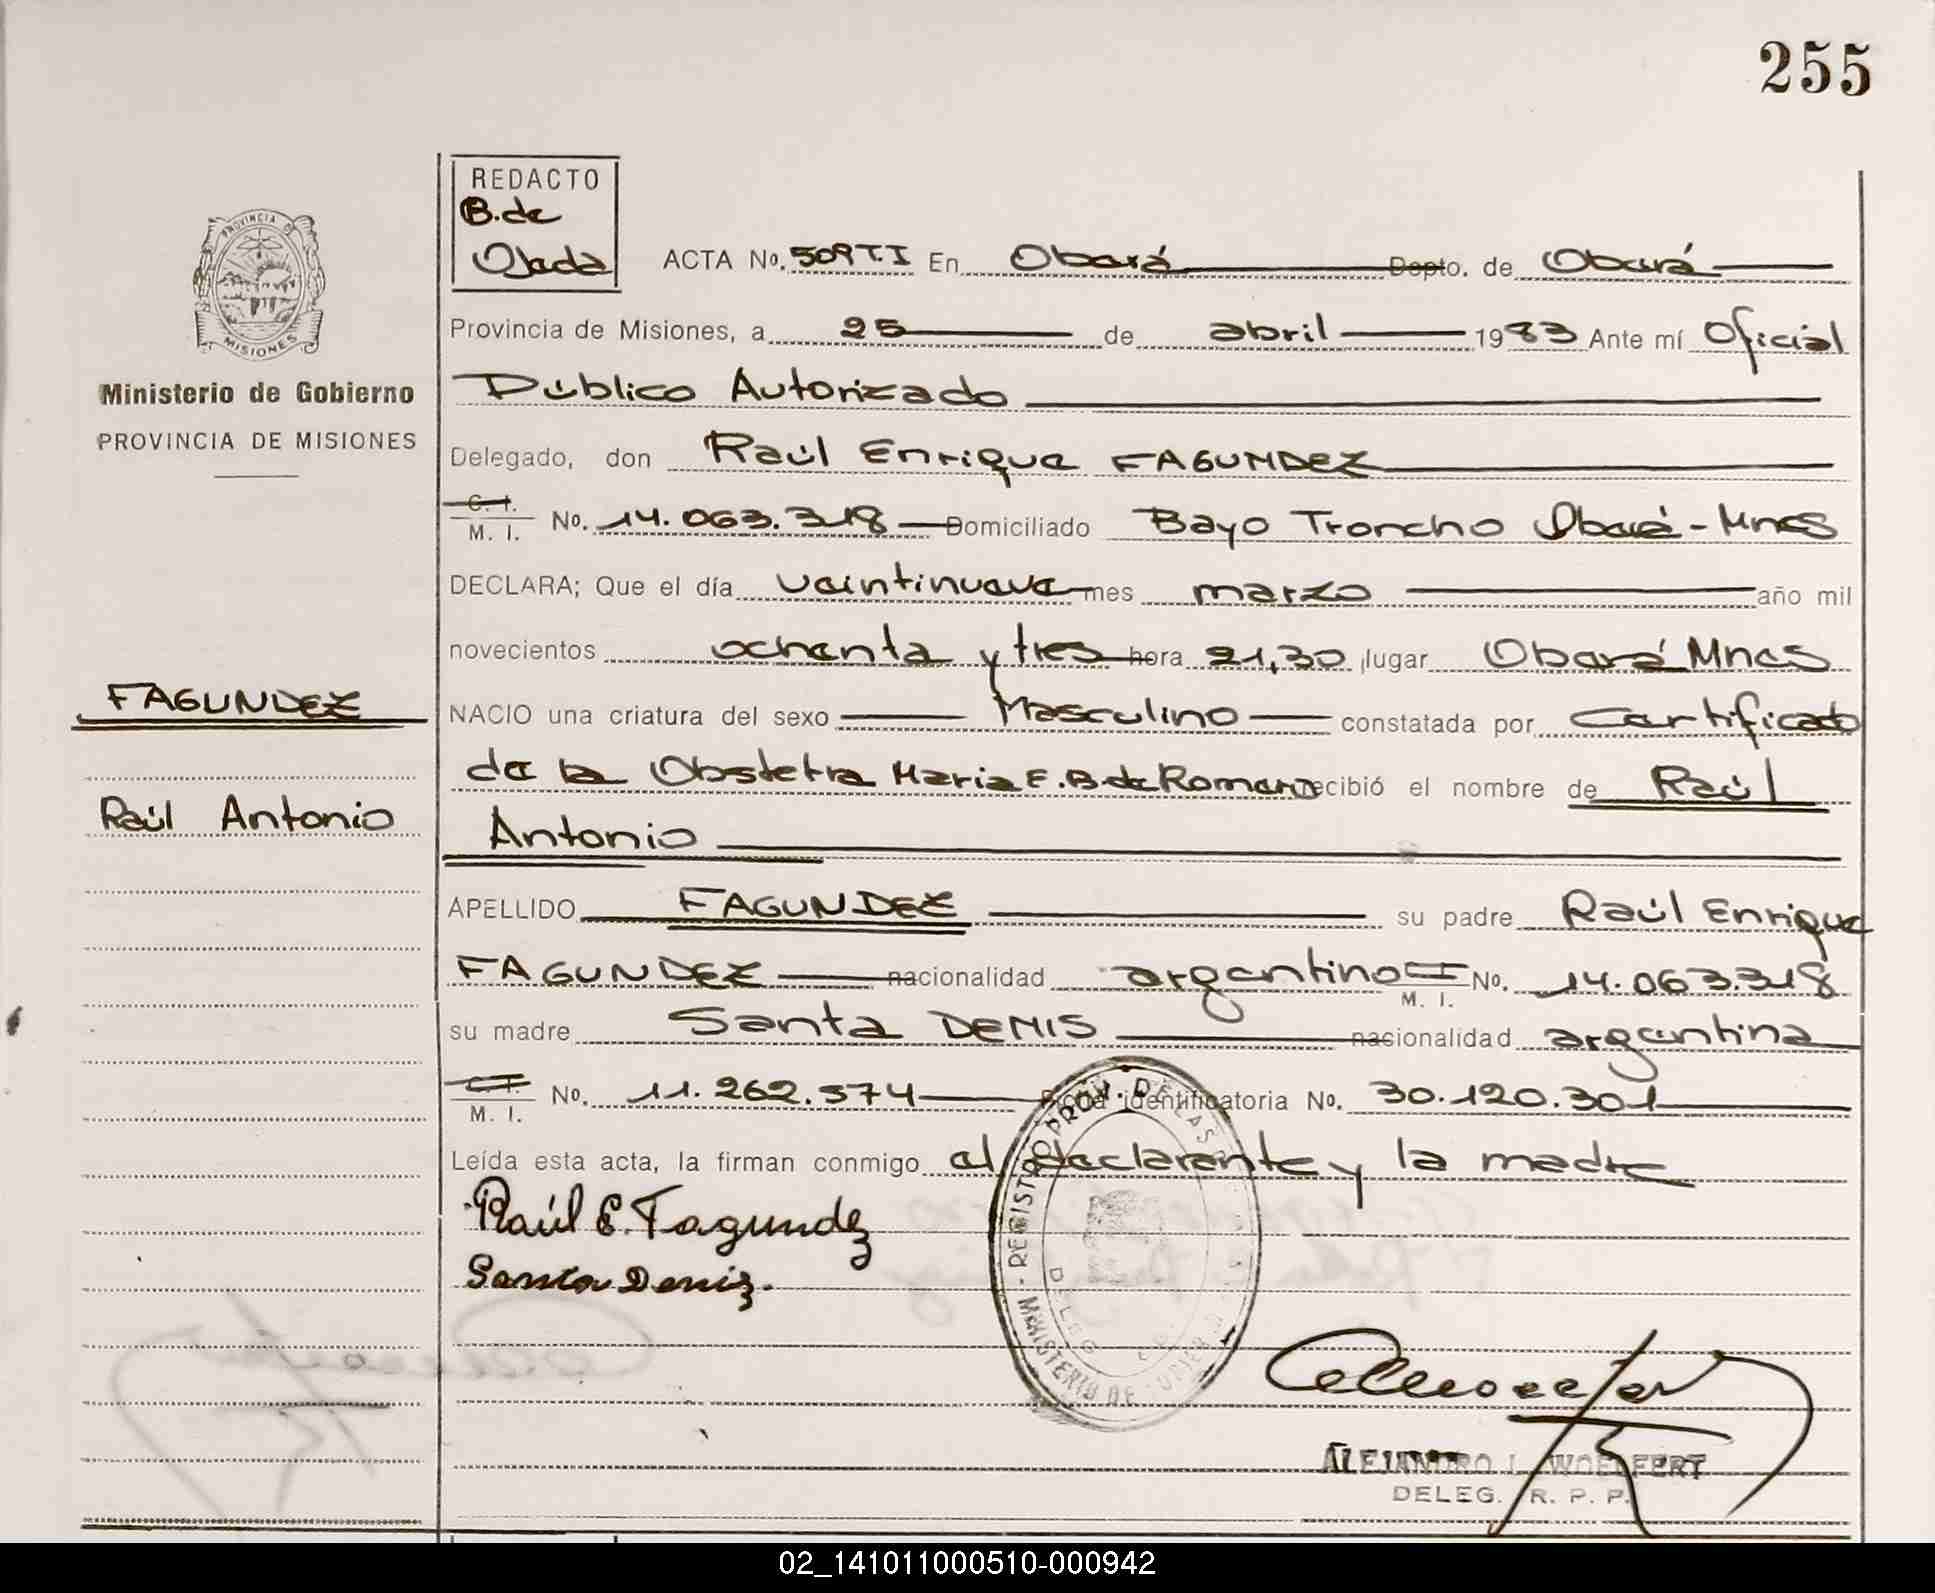 255
REDACTO
B. de
Ojeda
ACTA No. 509 T.I En Oberá Depto. de Oberá
PROVINCIA DE
MISIONES
Provincia de Misiones, a 25 de abril 1983 Ante mí Oficial
Ministerio de Gobierno
Público Autorizado
PROVINCIA DE MISIONES
Delegado, don Raúl Enrique FAGUNDEZ
C. I.
M. I. No. 14.063.318 Domiciliado Bayo Troncho Oberá - Mnes
DECLARA; Que el día veintinueve mes marzo año mil
novecientos ochenta y tres hora 21,30 lugar Oberá Mnes
FAGUNDEZ
NACIO una criatura del sexo Masculino constatada por Certificado
de la Obstetra Maria E. B. de Romero recibió el nombre de Raúl
Raúl Antonio
Antonio
APELLIDO FAGUNDEZ su padre Raúl Enrique
FAGUNDEZ nacionalidad argentino C I M. I. No. 14.063.318
su madre Santa DENIS nacionalidad argentina
C. I.
M. I. No. 11.262.574 Ficha identificatoria No. 30.120.301
Leída esta acta, la firman conmigo el declarante y la madre
Raúl E. Fagundez
Santa Deniz.
REGISTRO PROV. DE LAS
MINISTERIO DE
ALEJANDRO L. WOELFERT
DELEG. R. P. P.
02_141011000510-000942